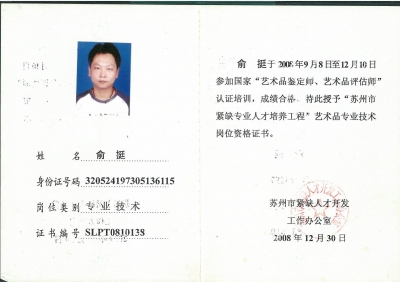 姓 名 俞 挺
身份证号码 320524197305136115
岗位类别 专业技术
证书编号 SLPT0810138
俞 挺于 2008 年 9 月 8 日至 12 月 10 日
参加国家“艺术品鉴定师、艺术品评估师”
认证培训，成绩合格，特此授予“苏州市
紧缺专业人才培养工程”艺术品专业技术
岗位资格证书。
苏州市紧缺人才开发
工作办公室
2008 年 12 月 30 日